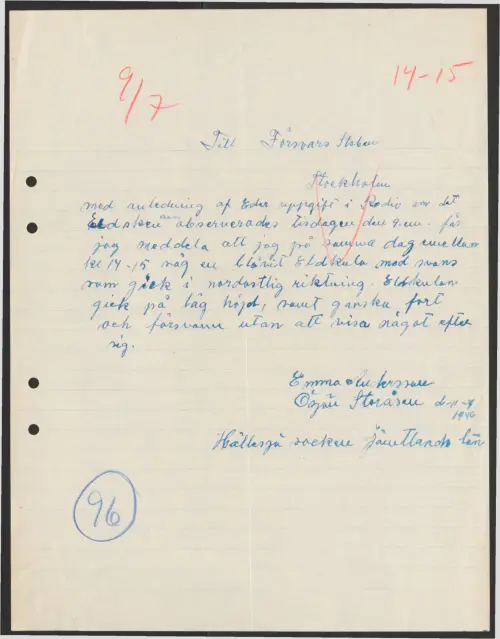 9/7
14-15
Till Försvars Staben
Stockholm
med anledning af Eder uppgift i Radio om det
Eldsken som observerades tisdagen den 9. får
jag meddela att jag på samma dag mellan
kl 14-15 såg en blåvit Eldkula med svans
som gick i nordostlig riktning. Eldkulan
gick på låg höjd, samt ganska fort
och försvann utan att visa något efter
sig.
Emma Andersson
Storåsen d. 11-7
1946
Hällesjö socken Jämtlands län
96